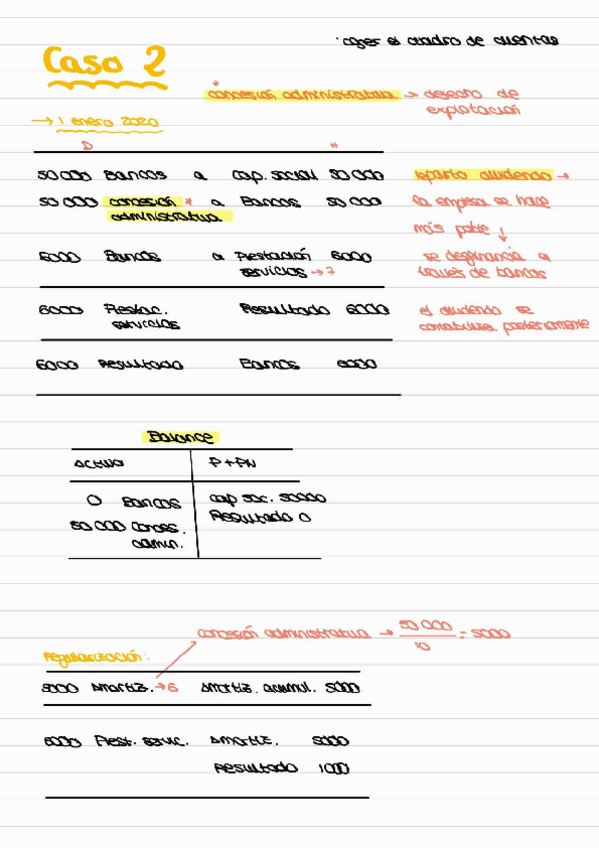 · coger el cuadro de cuentas
Caso 2
* concesión administrativa → derecho de
explotación
→ 1 enero 2020
D H
50000 Bancos a cap. social 50000 reparto dividendo →
50000 concesión * a Bancos 50000 la empresa se hace
administrativa
más pobre ↓
6000 Bancos a Prestación 6000 se desfinancia a
servicios → 7 través de bancos
6000 Prestac. Resultado 6000 el dividendo se
servicios contabiliza posteriormente
6000 Resultado Bancos 6000
Balance
Activo P + PN
0 Bancos cap soc. 50000
50000 conces. Resultado 0
admin.
concesión administrativa → 50000 / 10 = 5000
Regularización:
5000 Amortiz. → 6 Amortiz. acumul. 5000
6000 Prest. servic. Amortiz. 5000
Resultado 1000